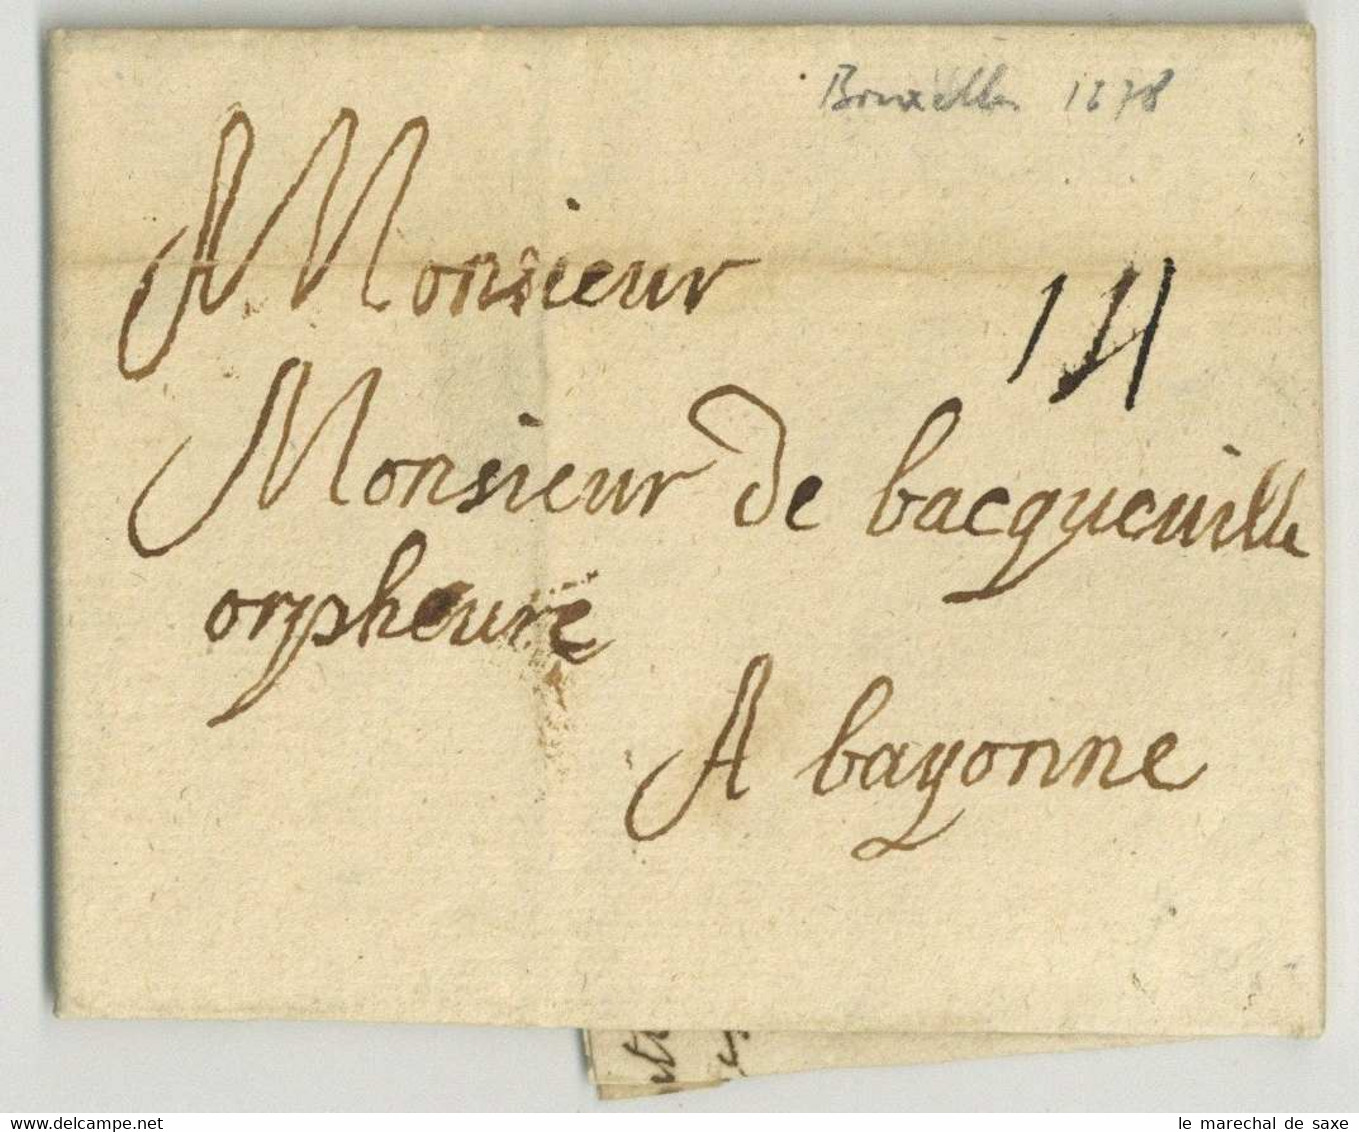 Bruxelles 1678
A Monsieur
14
Monsieur de bacqueuille
orpheure
A bayonne
Delcampe.net
le marechal de saxe